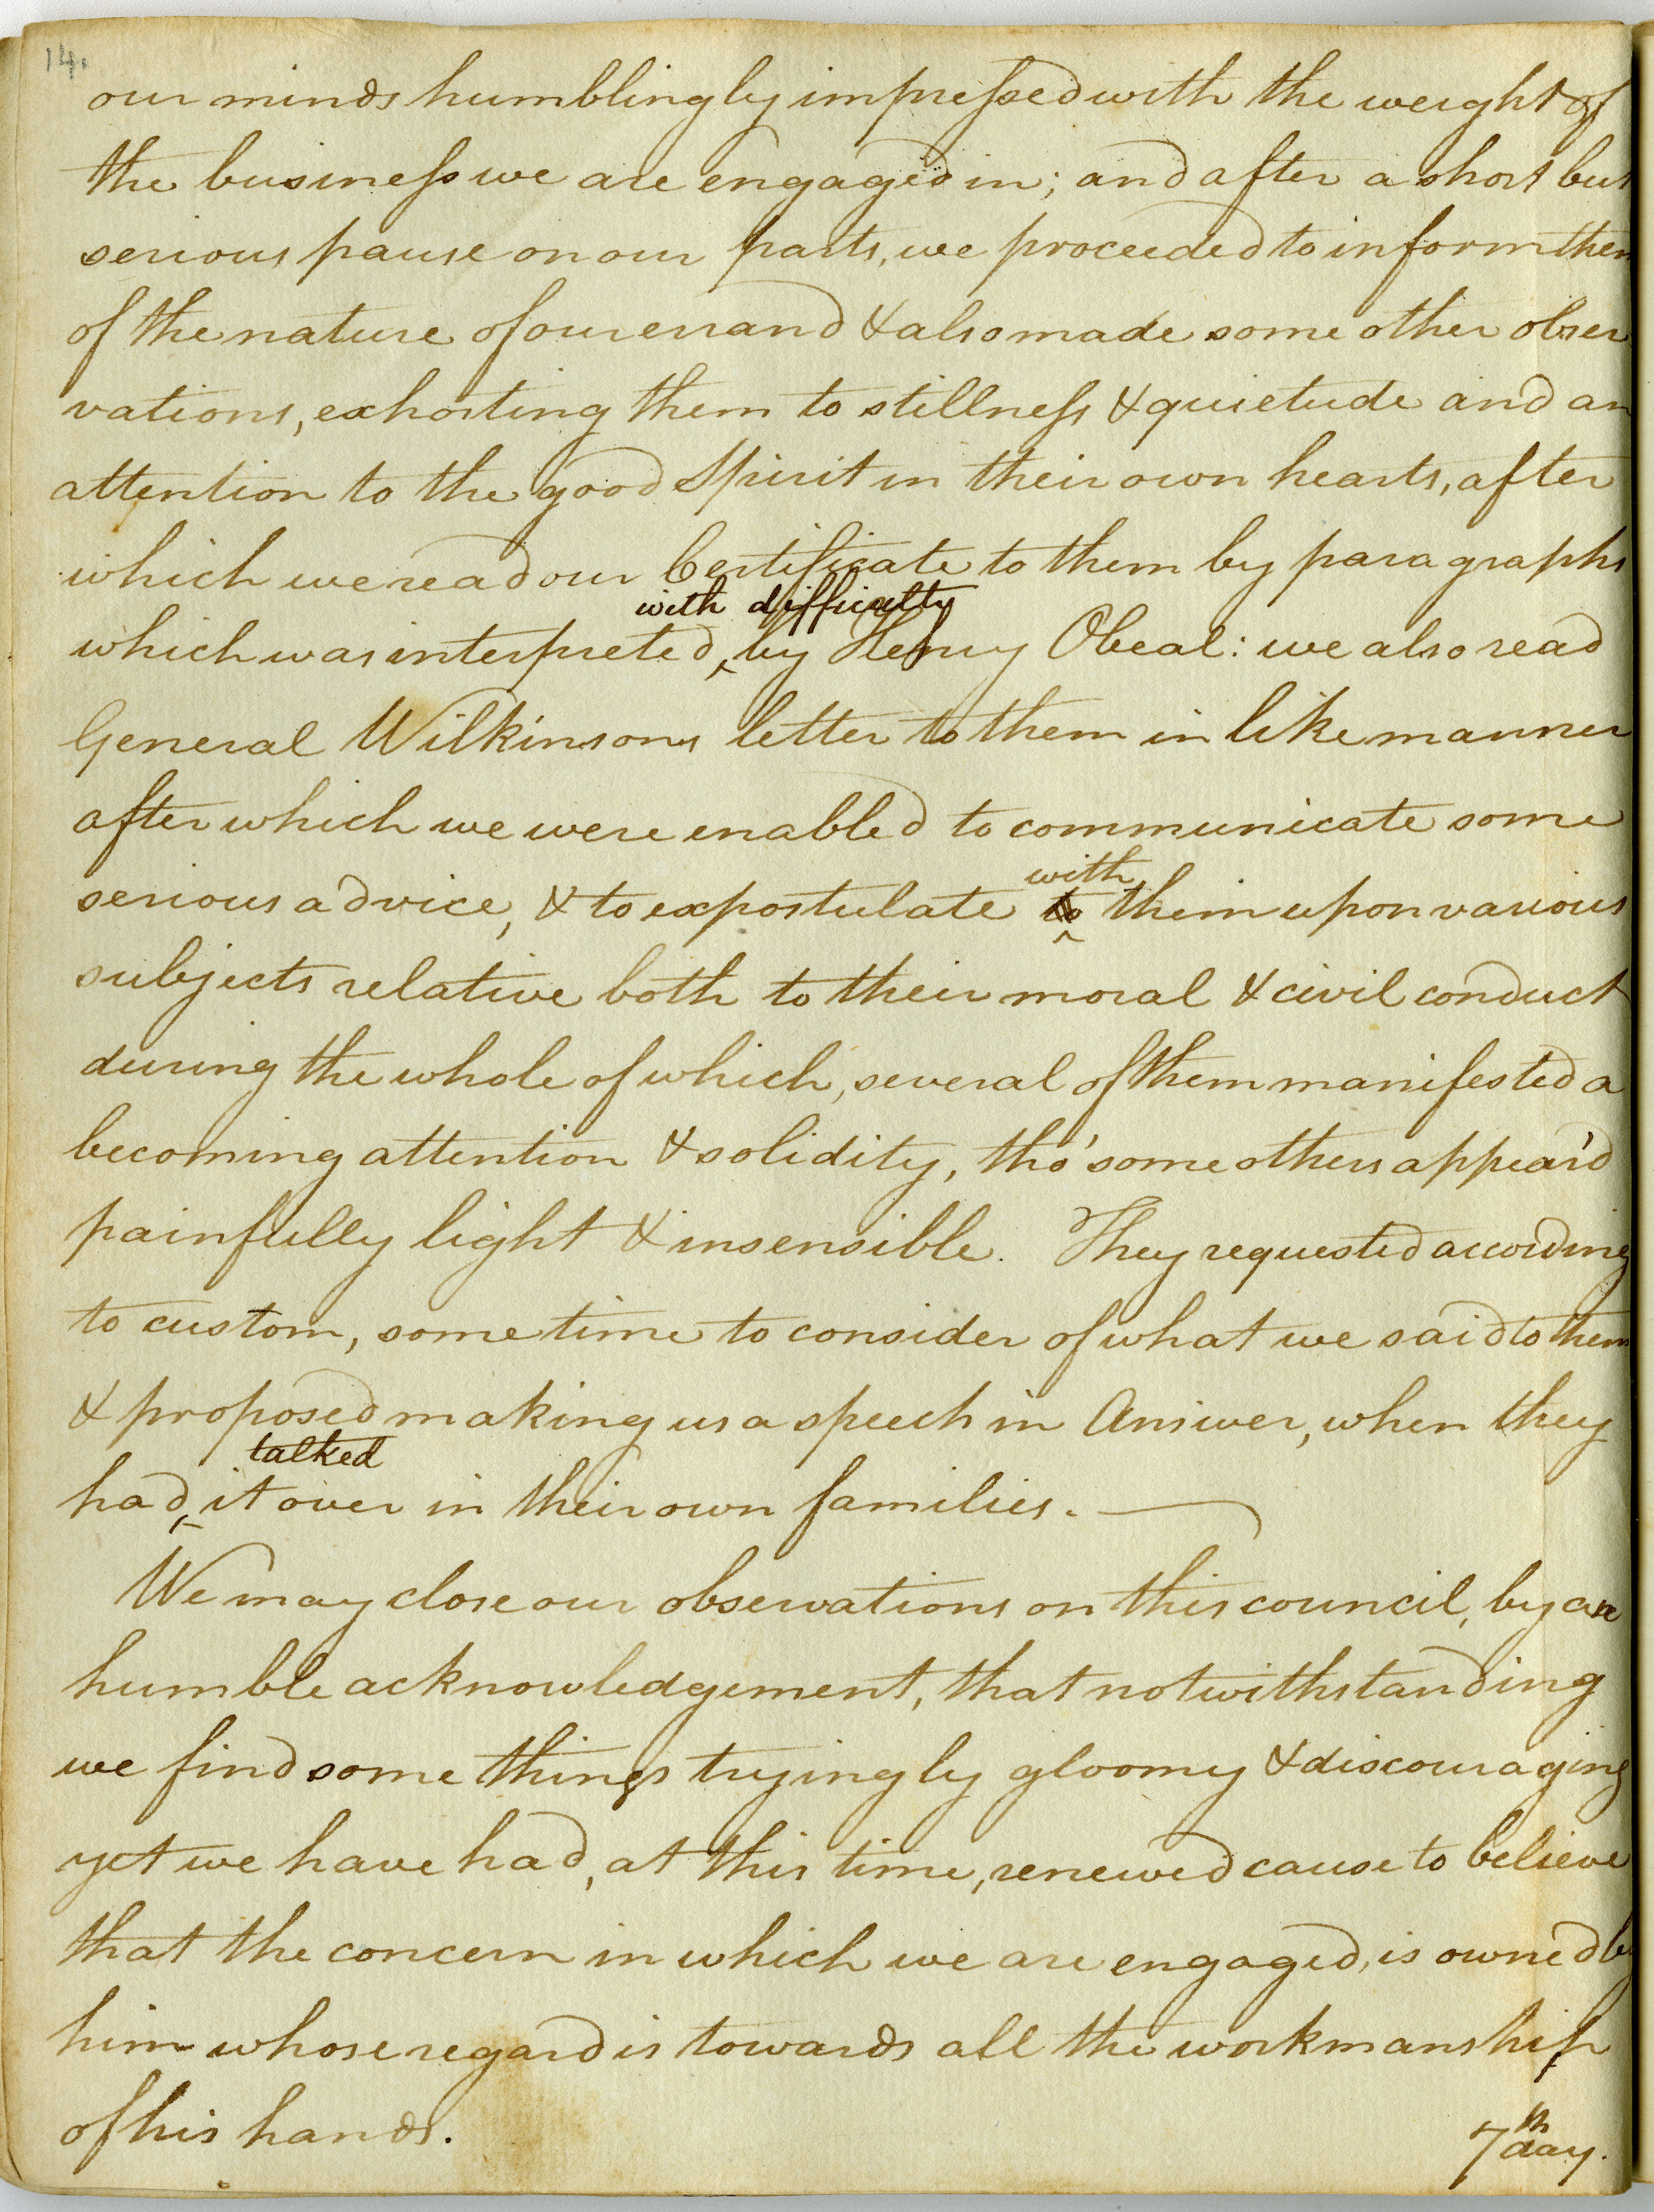 14.
our minds humblingly impressed with the weight of
the business we are engaged in; and after a short but
serious pause on our parts, we proceeded to inform them
of the nature of our errand & also made some other obser
vations, exhorting them to stillness & quietude and an
attention to the good Spirit in their own hearts, after
which we read our Certificate to them by paragraphs
with difficulty
which was interpreted ‸ by Henry Obeal: we also read
General Wilkinsons letter to them in like manner
after which we were enabled to communicate some
with
serious advice, & to expostulate to ‸ them upon various
subjects relative both to their moral & civil conduct
during the whole of which, several of them manifested a
becoming attention & solidity, tho' some others appear'd
painfully light & insensible. They requested according
to custom, some time to consider of what we said to them
& proposed making us a speech in Answer, when they
talked
had ‸ it over in their own families. —
We may close our observations on this council, by an
humble acknowledgement, that notwithstanding
we find some things tryingly gloomy & discouraging
yet we have had, at this time, renewed cause to believe
that the concern in which we are engaged, is owned by
him whose regard is towards all the workmanship
of his hands.
7th day.